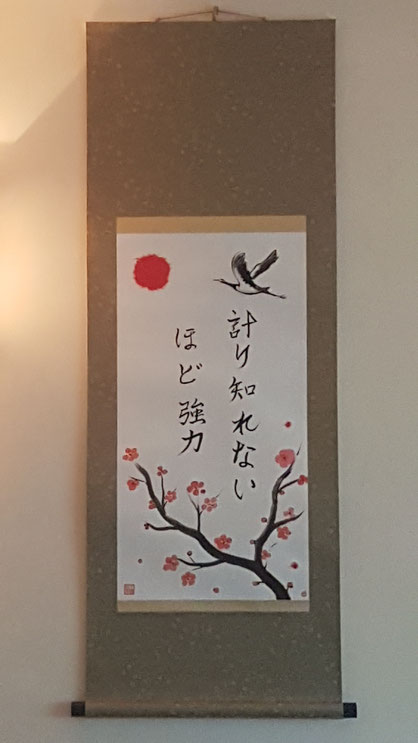 計り知れない
ほど強力